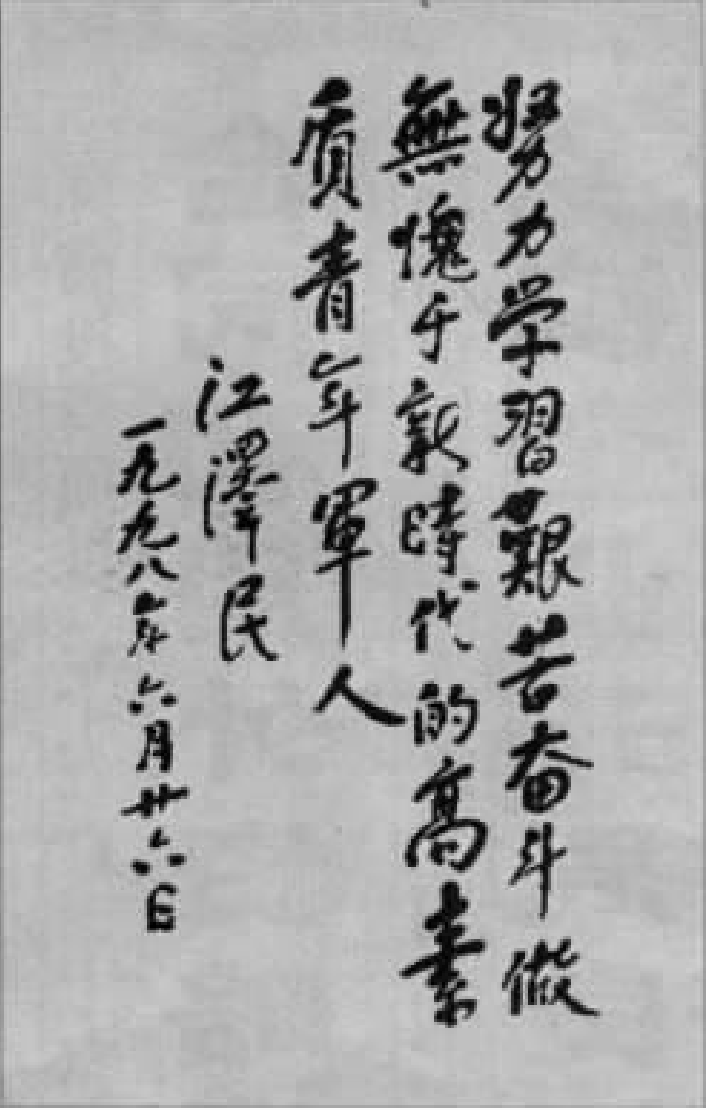 努力学習艱苦奋斗做
無愧于新時代的高素
质青年軍人
江澤民
一九九八年六月廿六日